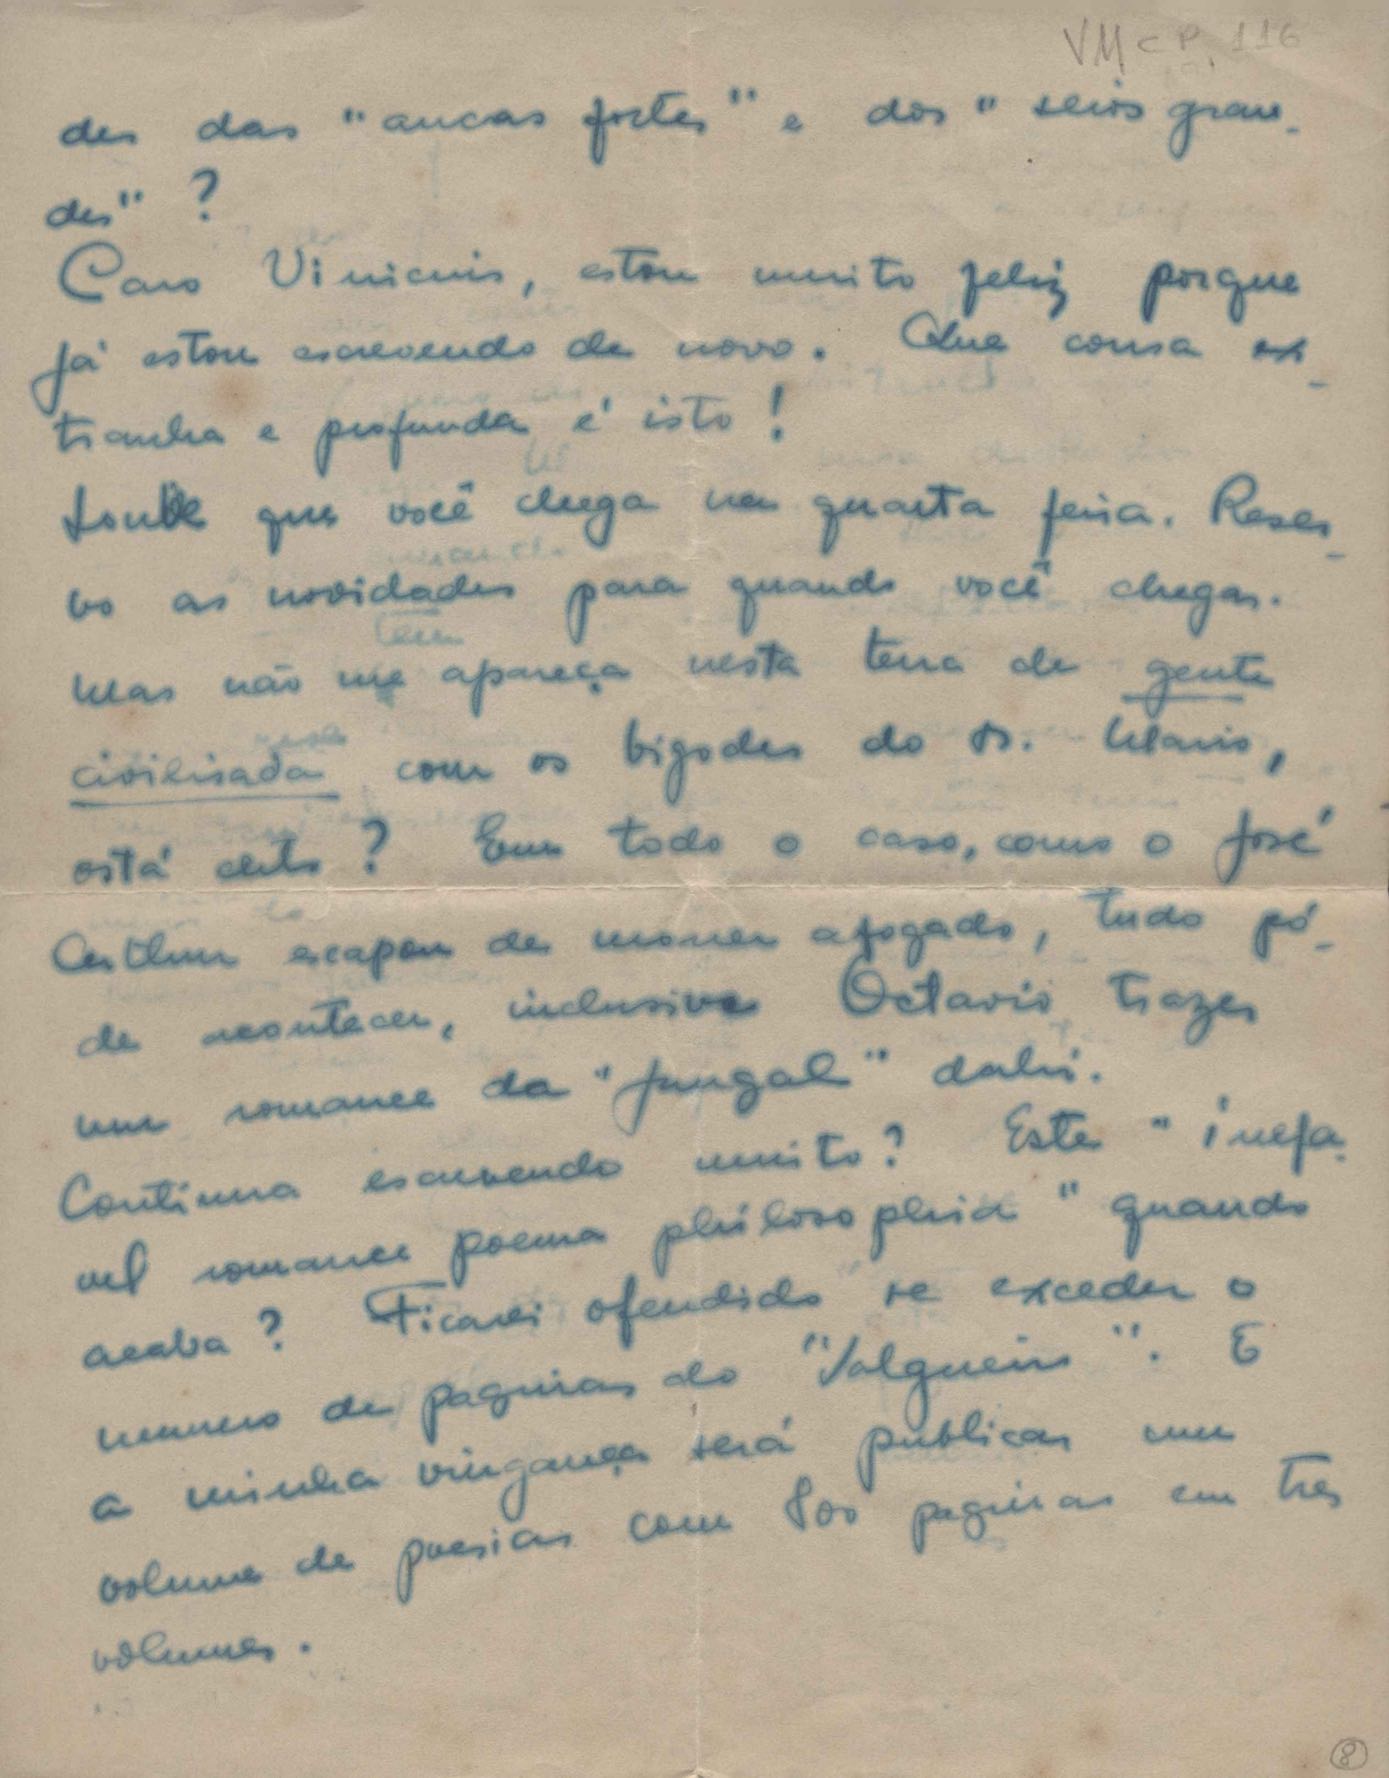 VMcp 116
des das "ancas fortes" e dos "seios gran-
des" ?
Caro Vinicius, estou muito feliz porque
já estou escrevendo de novo. Que cousa ex-
tranha e profunda é isto!
Soube que você chega na quarta feira. Reser-
vo as novidades para quando você chegar.
Mas não me apareça nesta terra de gente
civilisada com os bigodes do O. Mario,
está certo? Em todo o caso, como o José
Arthur escapou de morrer afogado, tudo pó-
de acontecer, inclusive Octavio trazer
um romance da "Jungal" dahi.
Continua escrevendo muito? Este "inefa-
vel romance poema philosophia" quando
acaba? Ficarei ofendido se exceder o
numero de paginas do "Salgueiro". E
a minha vingança será publicar um
volume de poesias com 800 paginas em tres
volumes.
8